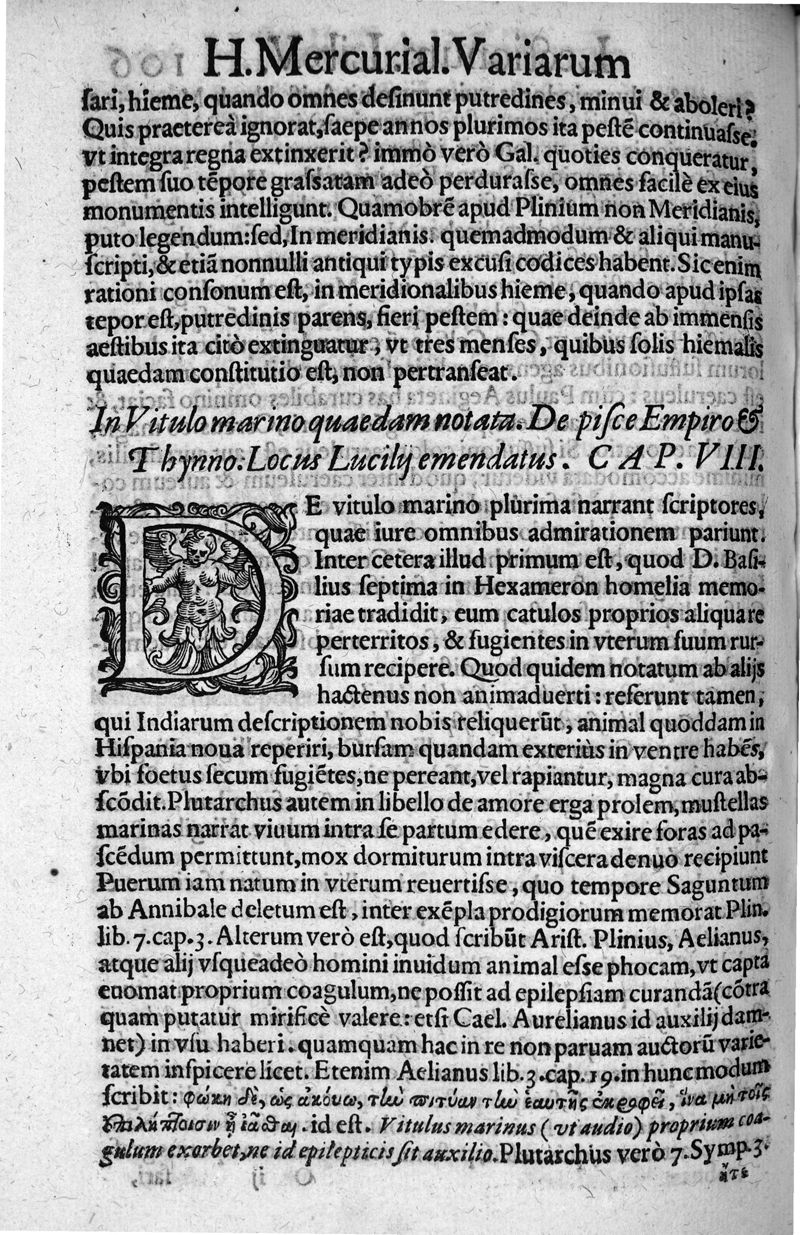 H. Mercurial. Variarum
sari, hieme, quando omnes desinunt putredines, minui & aboleri?
Quis praetereà ignorat, saepe annos plurimos ita pestē continuasse,
vt integra regna extinxerit? immò verò Gal. quoties conqueratur,
pestem suo tēpore grassatam adeò perdurasse, omnes facilè ex eius
monumentis intelligunt. Quamobrē apud Plinium non Meridianis,
puto legendum: sed, In meridianis. quemadmodum & aliqui manu-
scripti, & etiā nonnulli antiqui typis excusi codices habent. Sic enim
rationi consonum est, in meridionalibus hieme, quando apud ipsas
tepor est, putredinis parens, fieri pestem: quae deinde ab immensis
aestibus ita citò extinguatur, vt tres menses, quibus solis hiemalis
quaedam constitutio est, non pertranseat.
In Vitulo marino quaedam notata. De pisce Empiro &
Thynno. Locus Lucilij emendatus. CAP. VIII.
DE vitulo marino plurima narrant scriptores,
quae iure omnibus admirationem pariunt.
Inter cetera illud primum est, quod D. Basi-
lius septima in Hexameron homelia memo-
riae tradidit, eum catulos proprios aliqua re
perterritos, & fugientes in vterum suum rur-
sum recipere. Quod quidem notatum ab alijs
hactenus non animaduerti: referunt tamen,
qui Indiarum descriptionem nobis reliquerūt, animal quoddam in
Hispania noua reperiri, bursam quandam exteriùs in ventre habēs,
vbi foetus secum fugiētes, ne pereant, vel rapiantur, magna cura ab-
scōdit. Plutarchus autem in libello de amore erga prolem, mustellas
marinas narrat viuum intra se partum edere, quē exire foras ad pa-
scēdum permittunt, mox dormiturum intra viscera denuo recipiunt
Puerum iam natum in vterum reuertisse, quo tempore Saguntum
ab Annibale deletum est, inter exēpla prodigiorum memorat Plin.
lib. 7. cap. 3. Alterum verò est, quod scribūt Arist. Plinius, Aelianus,
atque alij vsqueadeò homini inuidum animal esse phocam, vt capta
euomat proprium coagulum, ne possit ad epilepsiam curandā (cōtra
quam putatur mirificè valere: etsi Cael. Aurelianus id auxilij dam-
net) in vsu haberi. quamquam hac in re non paruam auctorū varie-
tatem inspicere licet. Etenim Aelianus lib. 3. cap. 19. in hunc modum
scribit: φώκη δὲ, ὡς ἀκούω, τὴν πιτύαν τὴν ἑαυτῆς ἐκροφεῖ, ἵνα μὴ τοῖς
ἐπιλήπτοισιν ᾖ ἰᾶσθαι. id est. Vitulus marinus (vt audio) proprium coa-
gulum exorbet, ne id epilepticis sit auxilio. Plutarchus verò 7. Symp. 3.
ἥτε